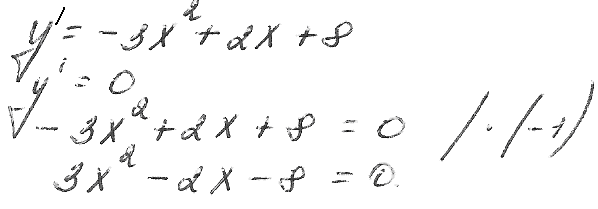 y' = -3x² + 2x + 8
y' = 0
-3x² + 2x + 8 = 0 / · (-1)
3x² - 2x - 8 = 0.